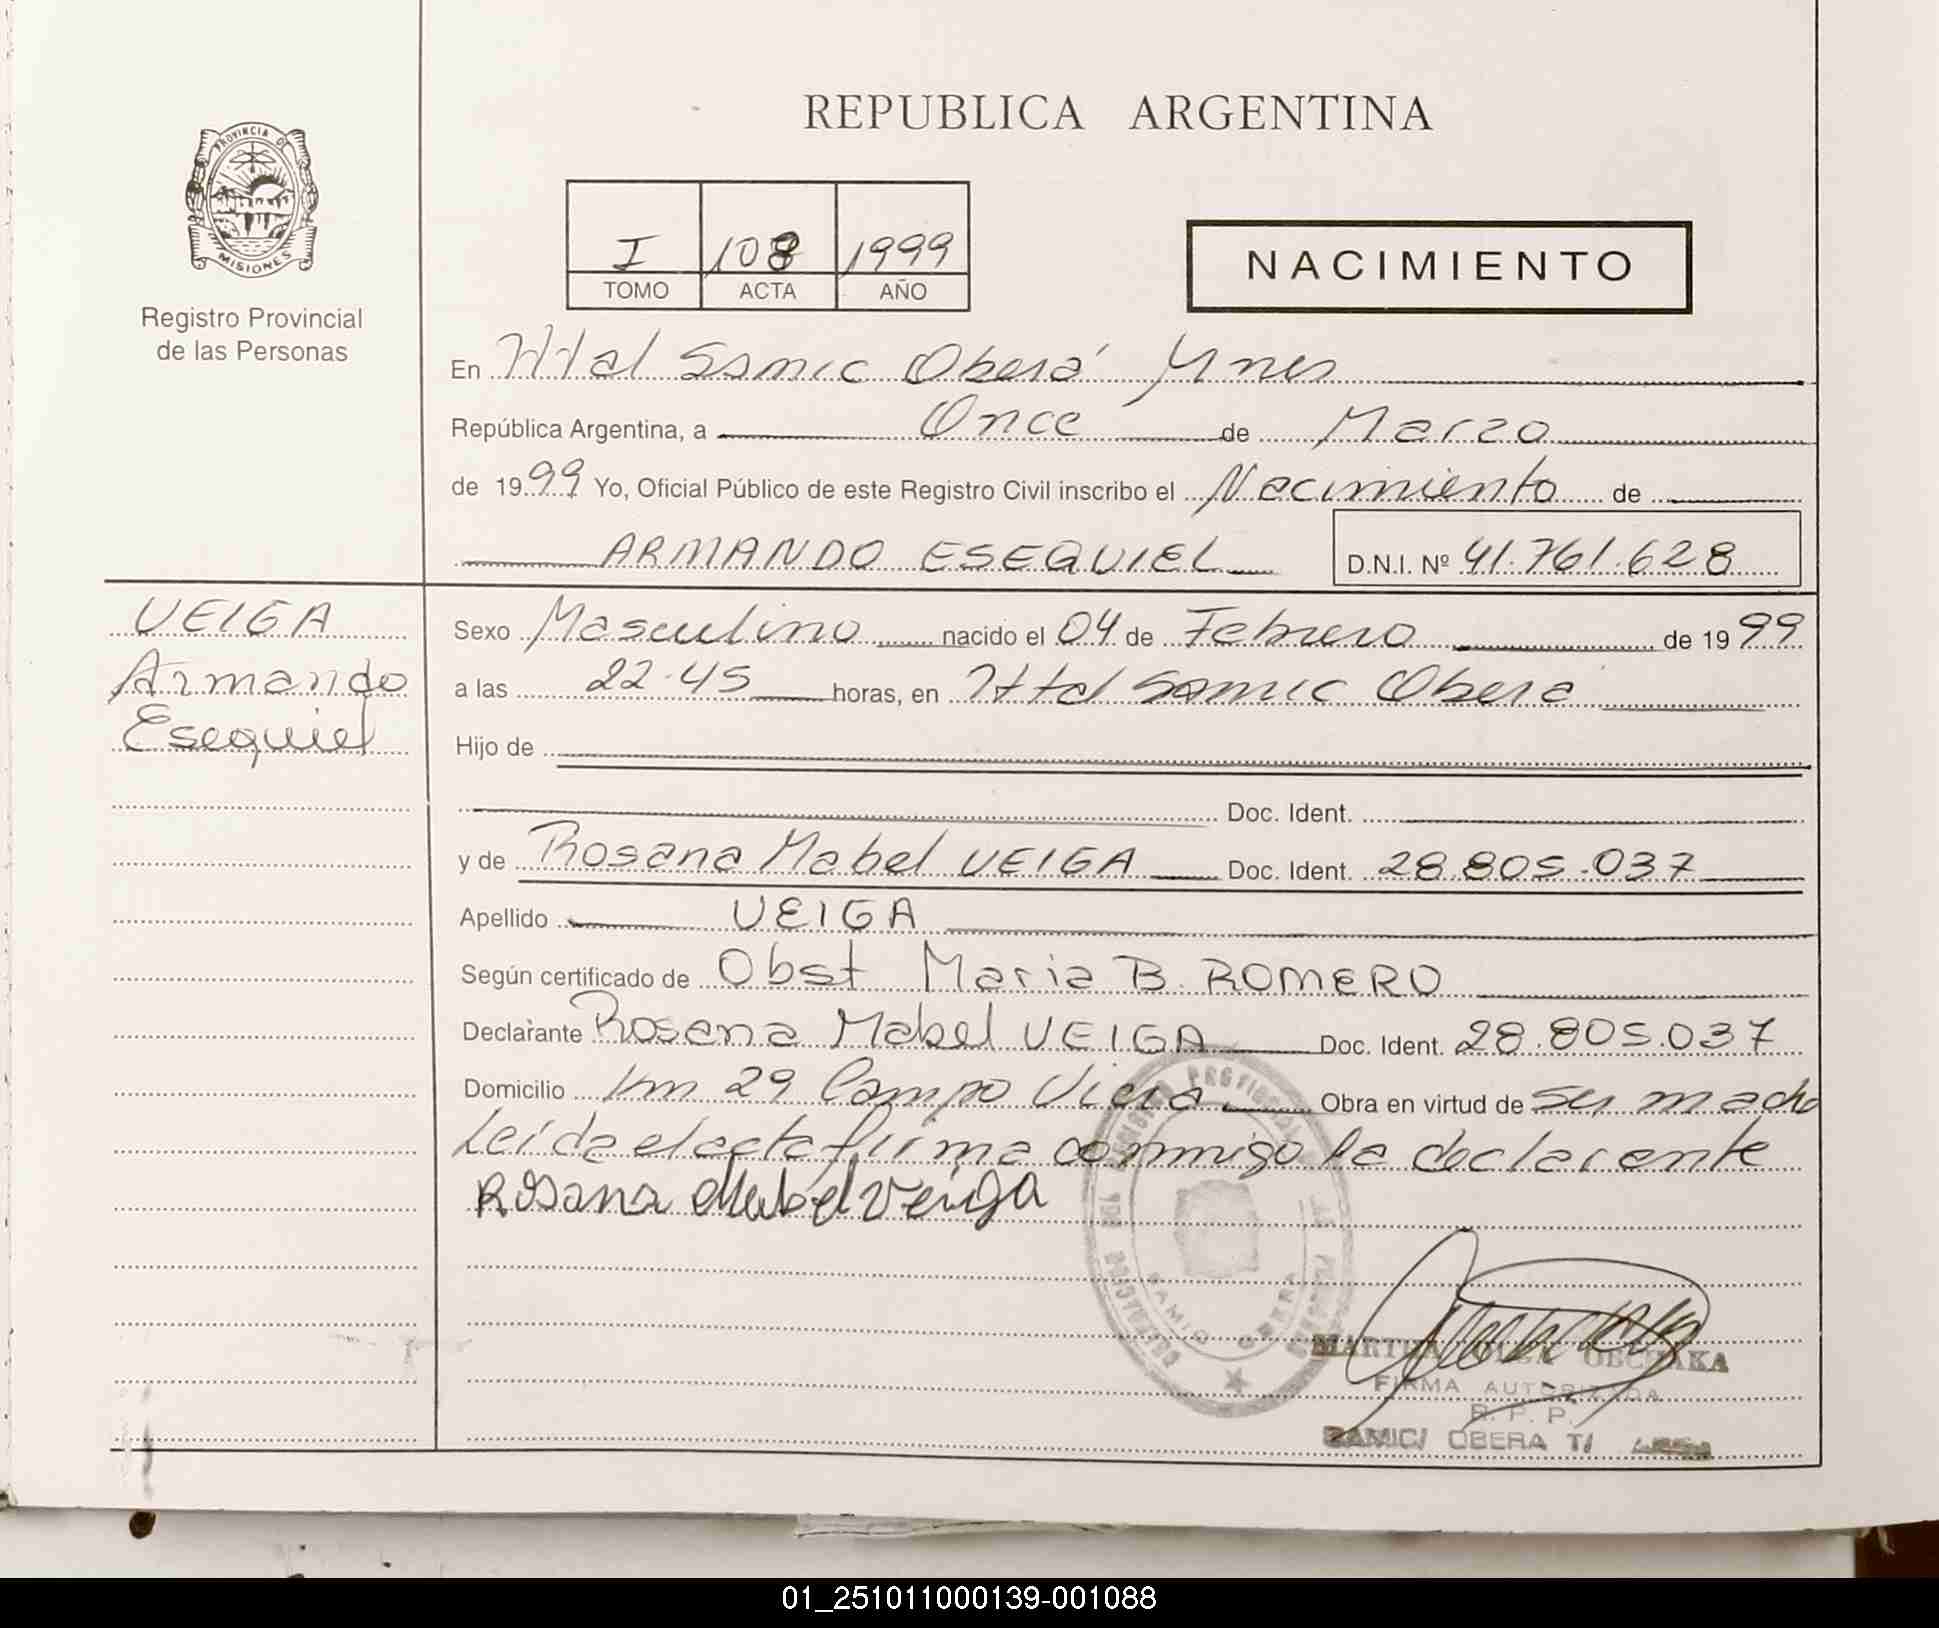 REPUBLICA ARGENTINA
PROVINCIA DE
MISIONES
Registro Provincial
de las Personas
I 108 1999
TOMO ACTA AÑO
NACIMIENTO
En Htal Samic Oberá Mnes
República Argentina, a Once de Marzo
de 1999 Yo, Oficial Público de este Registro Civil inscribo el Nacimiento de
ARMANDO ESEQUIEL D.N.I. Nº 41.761.628
VEIGA
Armando
Esequiel
Sexo Masculino nacido el 04 de Febrero de 1999
a las 22.45 horas, en Htal Samic Obera
Hijo de
Doc. Ident.
y de Rosana Mabel VEIGA Doc. Ident. 28.805.037
Apellido VEIGA
Según certificado de Obst Maria B. ROMERO
Declarante Rosana Mabel VEIGA Doc. Ident. 28.805.037
Domicilio Km 29 Campo Viera Obra en virtud de ser madre
Leída el acta firma conmigo la declarante
Rosana Mabel Veiga
MARTHA
FIRMA AUTORIZADA
R. P. P.
SAMIC/ OBERA
01_251011000139-001088